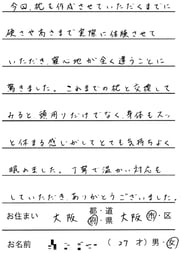 今回、枕を作成させていただくまでに
硬さや高さまで実際に体験させて
いただき、寝心地が全く違うことに
驚きました。これまでの枕と交換して
みると首周りだけでなく、身体もスッ
と休まる感じがしてとても気持ちよく
眠れました。丁寧で温かい対応も
していただき、ありがとうございました。
お住い 大阪 都・道・府・県 大阪 市・区
お名前 (27才) 男・女